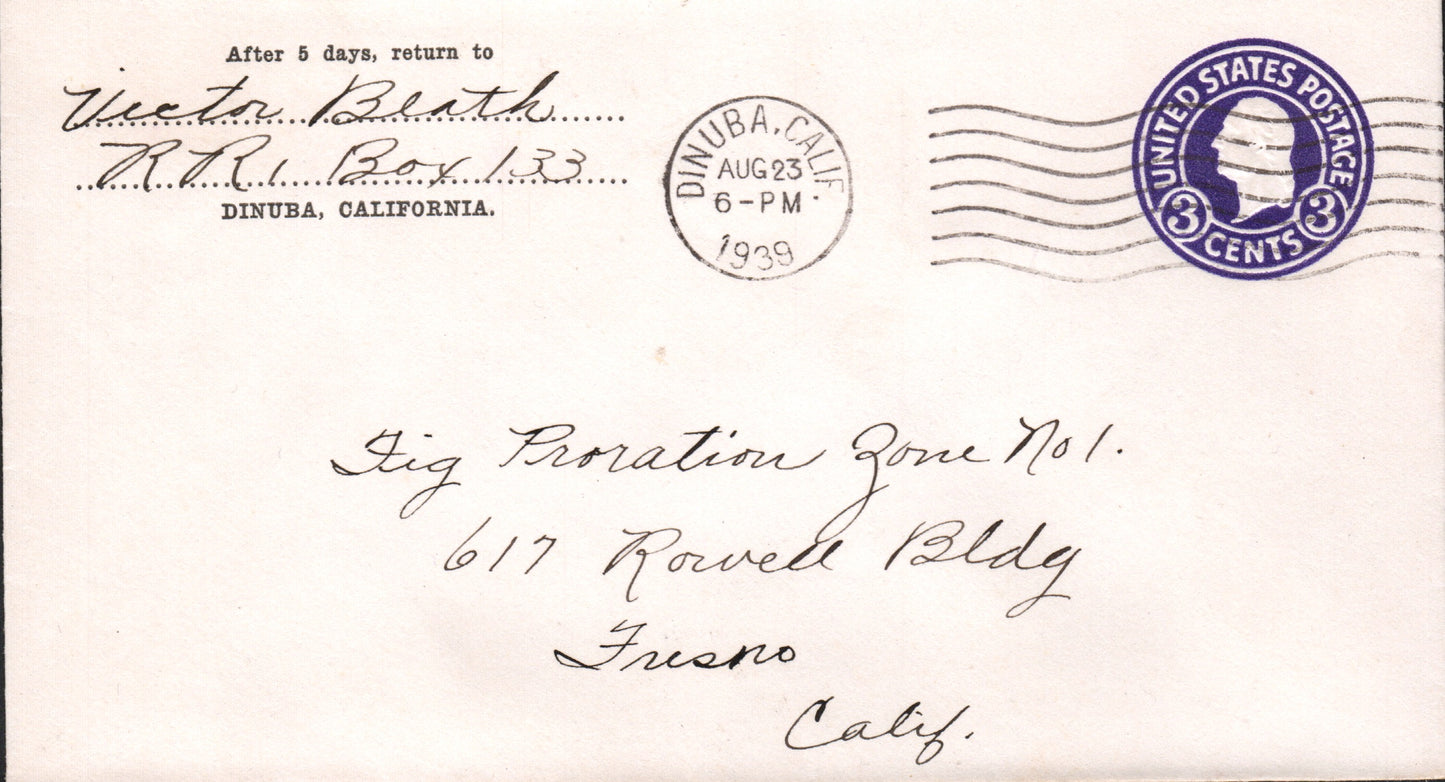 After 5 days, return to
Victor Blath
R R 1 Box 133
DINUBA, CALIFORNIA.
DINUBA, CALIF.
AUG 23
6-PM
1939
UNITED STATES POSTAGE
3 CENTS 3
Fig Proration Zone No 1.
617 Rowell Bldg
Fresno
Calif.